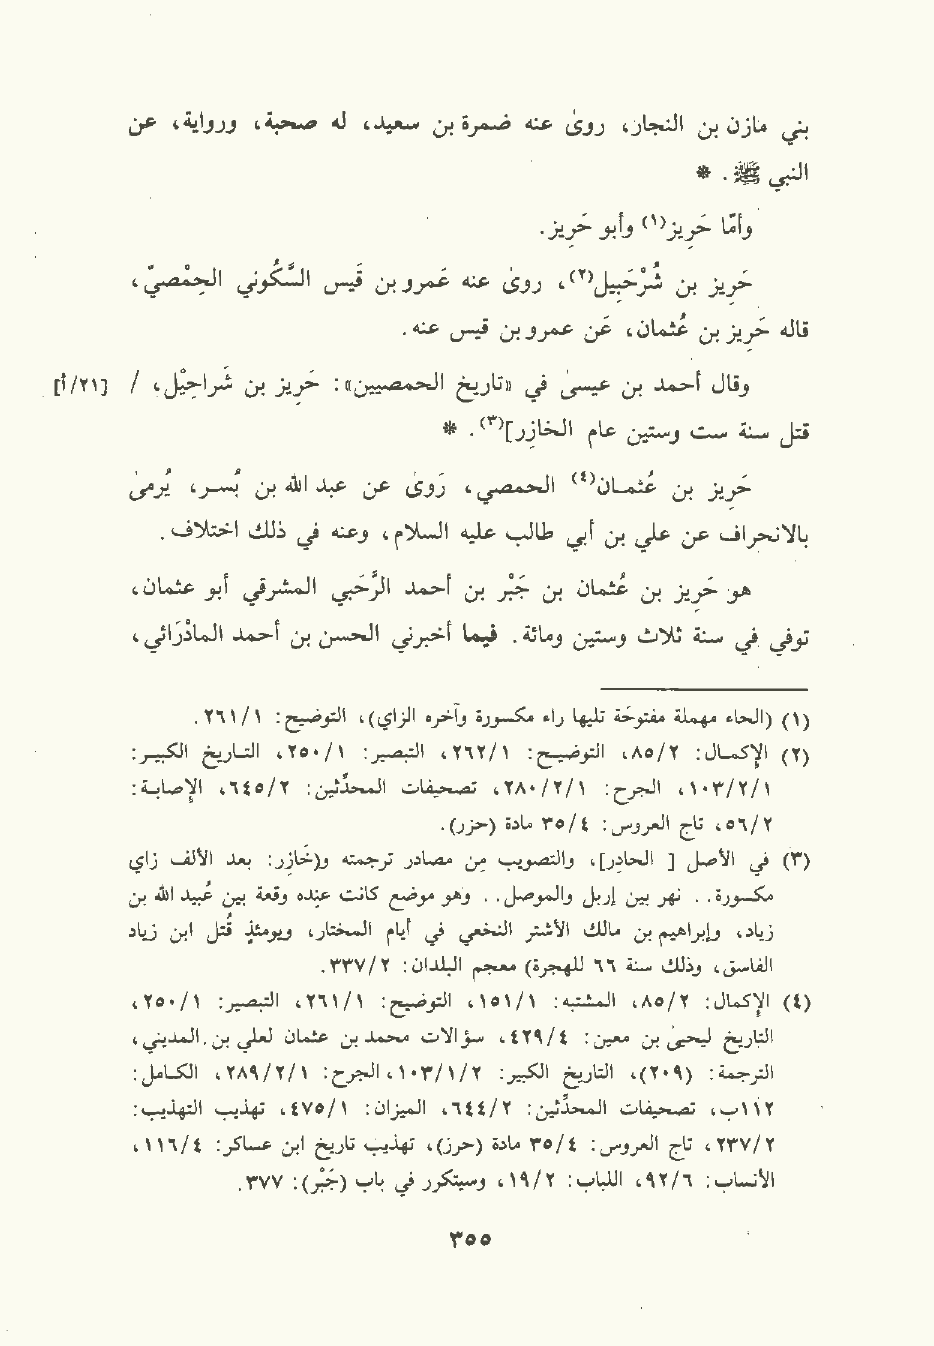 بني مازن بن النجار، روىٰ عنه ضمرة بن سعيد، له صحبة، ورواية، عن
النبي ﷺ . *
وأمّا حَرِيز(١) وأبو حَرِيز.
حَرِيز بن شُرَحْبِيل(٢)، روىٰ عنه عَمرو بن قَيس السَّكُوني الحِمْصيّ،
قاله حَرِيز بن عُثمان، عَن عمرو بن قيس عنه.
وقال أحمد بن عيسىٰ في «تاريخ الحمصيين»: حَرِيز بن شَراحِيْل، / [٢١/أ]
قتل سنة ست وستين عام الخازِر](٣). *
حَرِيز بن عُثمان(٤) الحمصي، رَوىٰ عن عبد الله بن بُسر، يُرمىٰ
بالانحراف عن علي بن أبي طالب عليه السلام، وعنه في ذلك اختلاف.
هو حَرِيز بن عُثمان بن جَبْر بن أحمد الرَّحَبي المشرقي أبو عثمان،
توفي في سنة ثلاث وستين ومائة. فيما أخبرني الحسن بن أحمد المادَرْائي،
(١) (الحاء مهملة مفتوحَة تليها راء مكسورة وآخره الزاي)، التوضيح: ٢٦١/١.
(٢) الإكمال: ٨٥/٢، التوضيح: ٢٦٢/١، التبصير: ٢٥٠/١، التاريخ الكبير:
١٠٣/٢/١، الجرح: ٢٨٠/٢/١، تصحيفات المحدِّثين: ٦٤٥/٢، الإصابة:
٥٦/٢، تاج العروس: ٣٥/٤ مادة (حرز).
(٣) في الأصل [ الحادِر]، والتصويب مِن مصادر ترجمته و(خَازِر: بعد الألف زاي
مكسورة.. نهر بين إربل والموصل.. وهو موضع كانت عِنده وقعة بين عُبيد الله بن
زياد، وإبراهيم بن مالك الأشتر النخعي في أيام المختار، ويومئذٍ قُتل ابن زياد
الفاسق، وذلك سنة ٦٦ للهجرة) معجم البلدان: ٣٣٧/٢.
(٤) الإكمال: ٨٥/٢، المشتبه: ١٥١/١، التوضيح: ٢٦١/١، التبصير: ٢٥٠/١،
التاريخ ليحيىٰ بن معين: ٤٢٩/٤، سؤالات محمد بن عثمان لعلي بن المديني،
الترجمة: (٢٠٩)، التاريخ الكبير: ١٠٣/١/٢، الجرح: ٢٨٩/٢/١، الكامل:
١١٢ب، تصحيفات المحدِّثين: ٦٤٤/٢، الميزان: ٤٧٥/١، تهذيب التهذيب:
٢٣٧/٢، تاج العروس: ٣٥/٤ مادة (حرز)، تهذيب تاريخ ابن عساكر: ١١٦/٤،
الأنساب: ٩٢/٦، اللباب: ١٩/٢، وسيتكرر في باب (جَبْر): ٣٧٧.
٣٥٥